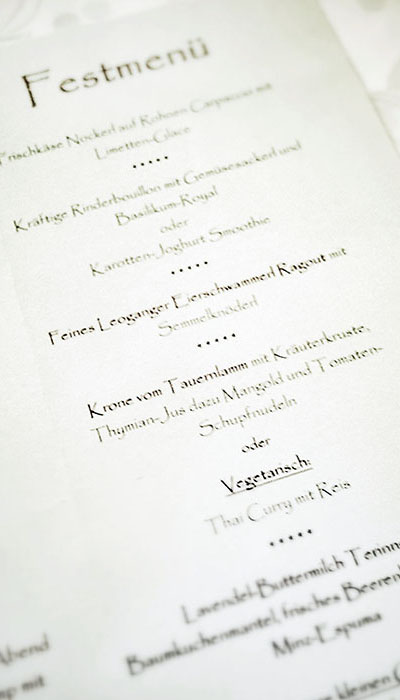 Festmenü
Frischkäse Nockerl auf Rohnen Carpaccio mit
Limetten-Glace
•••••
Kräftige Rinderbouillon mit Gemüsesackerl und
Basilikum-Royal
oder
Karotten-Joghurt Smoothie
•••••
Feines Leoganger Eierschwammerl Ragout mit
Semmelknöderl
•••••
Krone vom Tauernlamm mit Kräuterkruste,
Thymian-Jus dazu Mangold und Tomaten-
Schupfnudeln
oder
Vegetarisch:
Thai Curry mit Reis
•••••
Lavendel-Buttermilch Terrine
Baumkuchenmantel, frisches Beeren
Minz-Espuma
kleinen
Abend
mit